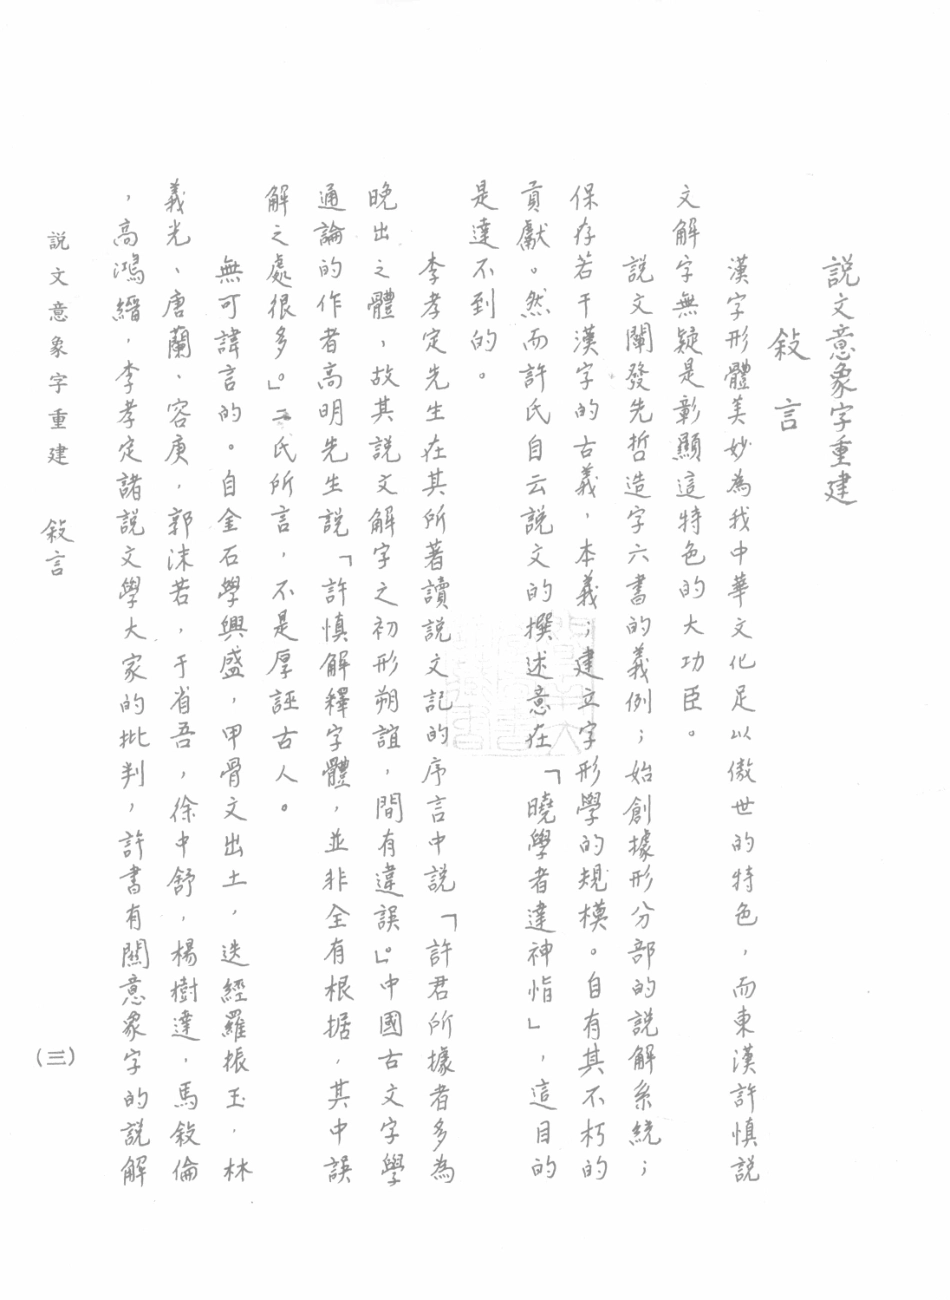 說文意象字重建
敍言
漢字形體美妙為我中華文化足以傲世的特色，而東漢許慎說
文解字無疑是彰顯這特色的大功臣。
說文闡發先哲造字六書的義例；始創據形分部的說解系統；
保存若干漢字的古義、本義；建立字形學的規模。自有其不朽的
貢獻。然而許氏自云說文的撰述意在「曉學者達神恉」，這目的
是達不到的。
李孝定先生在其所著讀說文記的序言中說「許君所據者多為
晚出之體，故其說文解字之初形朔誼，間有違誤。」中國古文字學
通論的作者高明先生說「許慎解釋字體，並非全有根据，其中誤
解之處很多。」二氏所言，不是厚誣古人。
無可諱言的。自金石學興盛，甲骨文出土，迭經羅振玉、林
義光、唐蘭、容庚、郭沫若，于省吾，徐中舒，楊樹達，馬敍倫
，高鴻縉，李孝定諸說文學大家的批判，許書有關意象字的說解
說文意象字重建 敍言
(三)